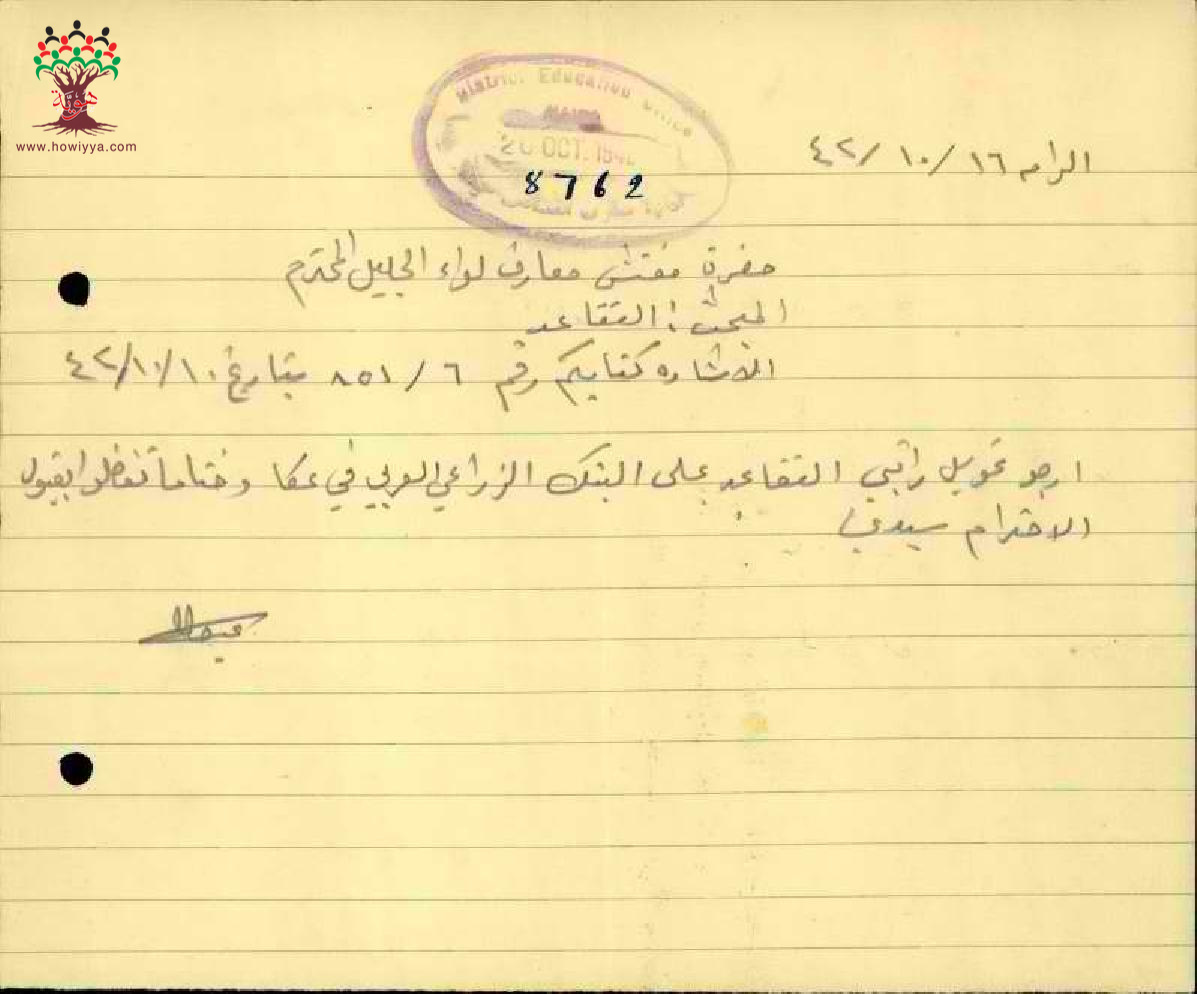 هوية
www.howiyya.com
District Education Office
HAIFA
20 OCT. 194
8762
الرامه ١٦/ ١٠/ ٤٢
حضرة مفتش معارف لواء الجليل المحترم
المبحث : التقاعد
الاشاره كتابكم رقم ٦ / ٨٥١ بتاريخ ٤٢/١٠/١٠
ارجو تحويل راتبي التقاعد على البنك الزراعي العربي في عكا وختاما تفضلوا بقبول
الاحترام سيدي